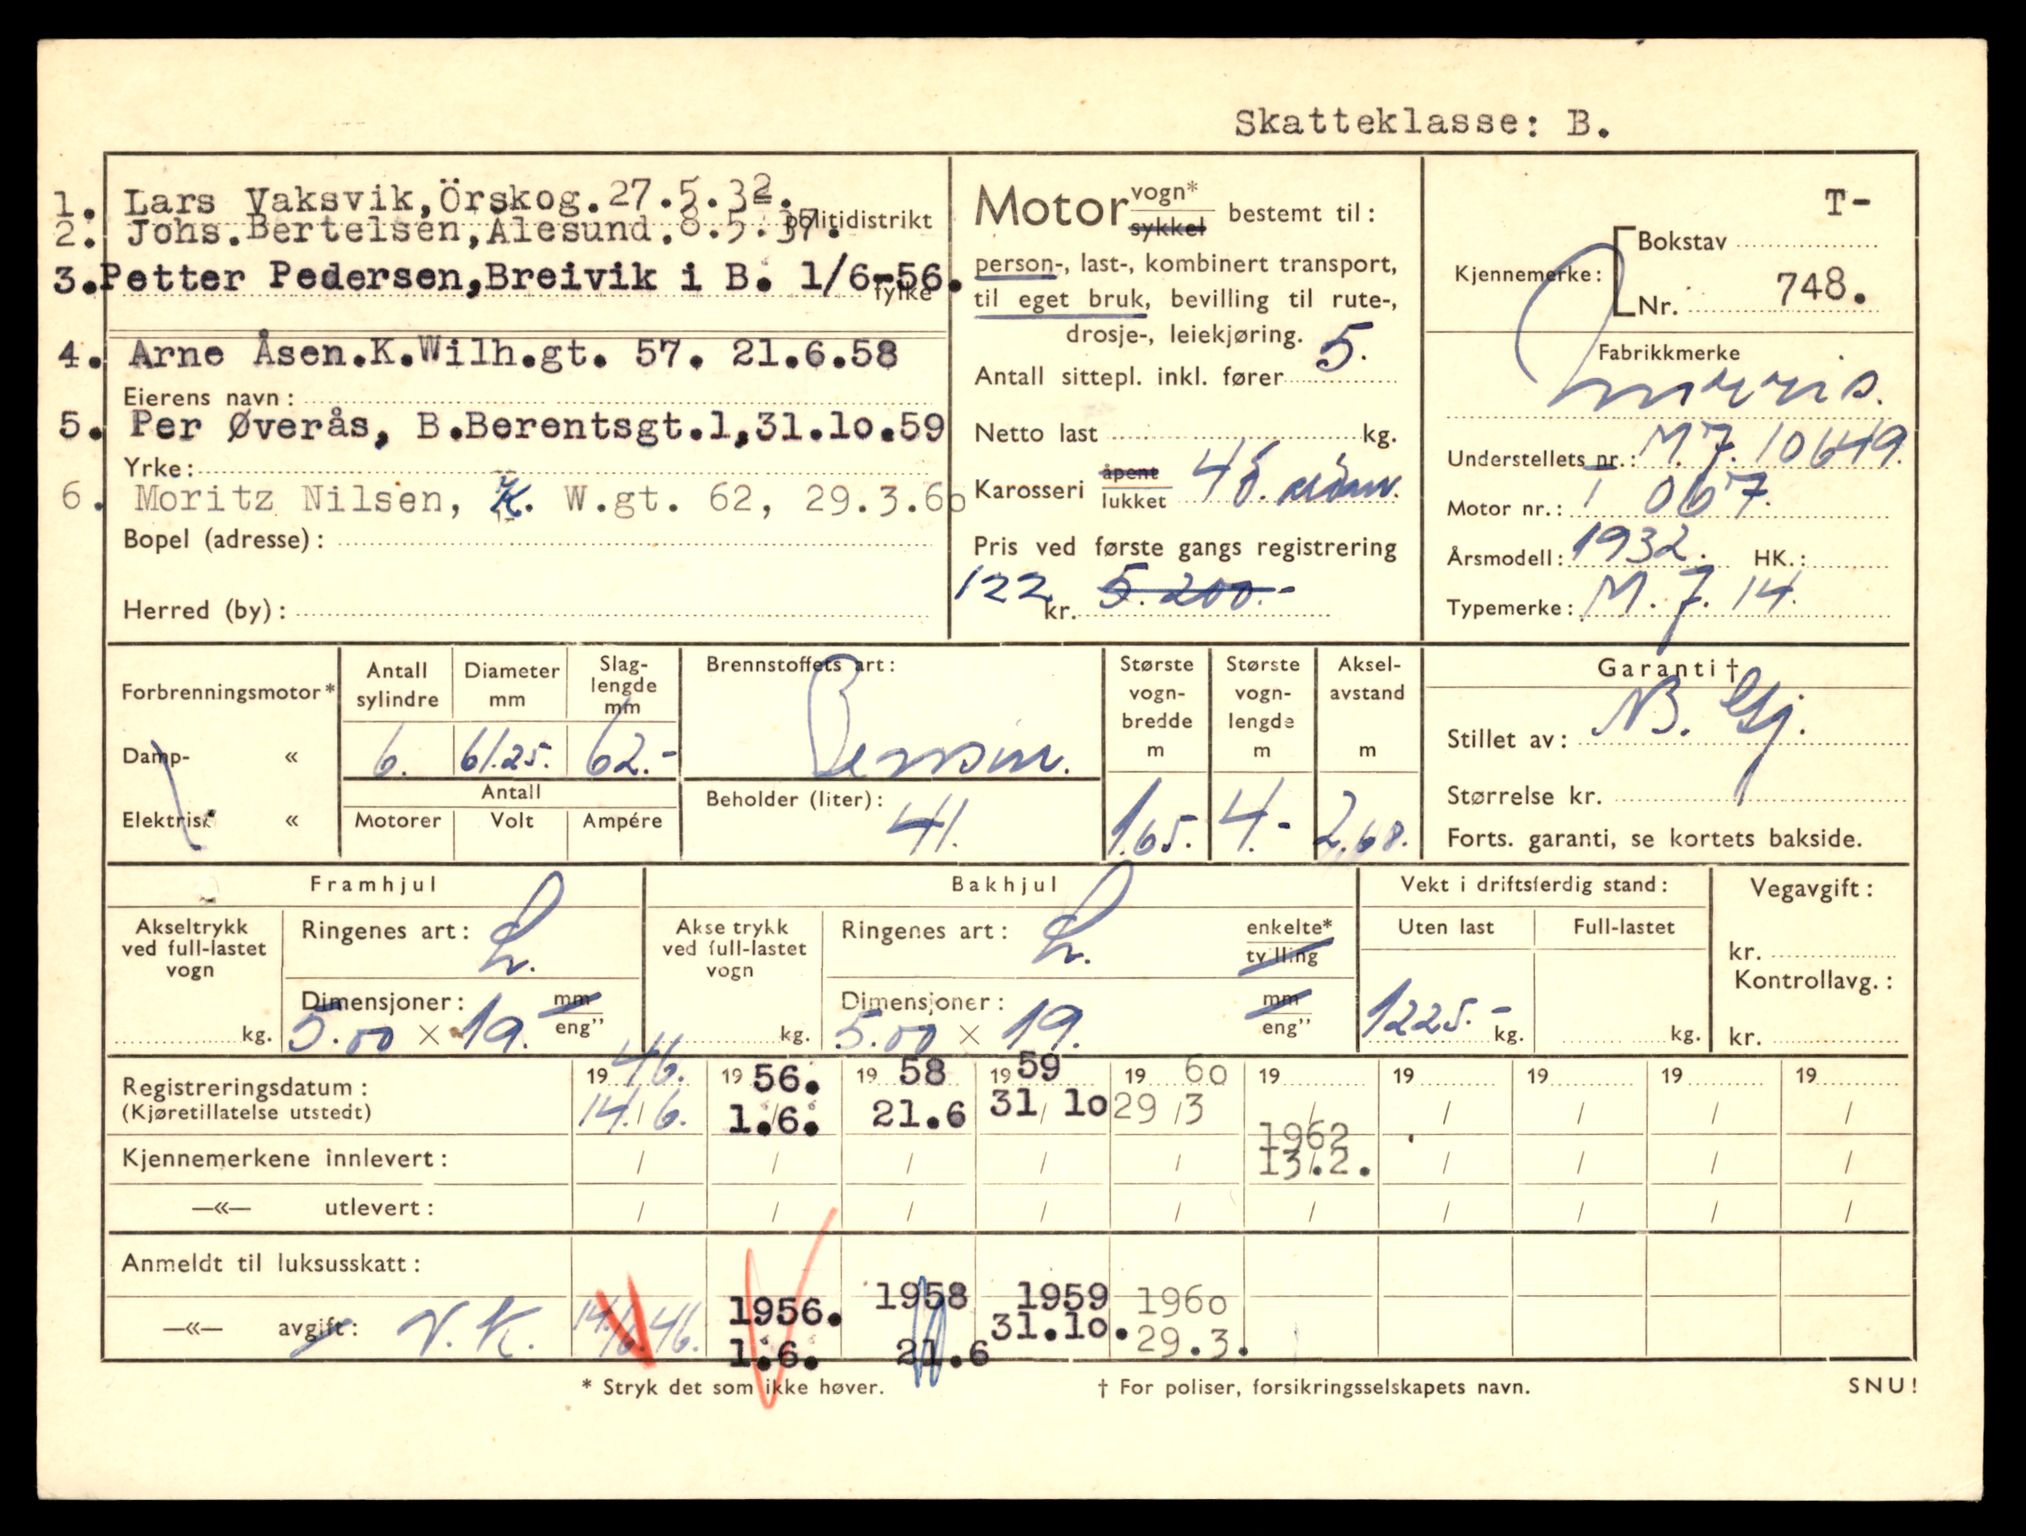 Skatteklasse: B.
1. Lars Vaksvik,Örskog.27.5.32.
politidistrikt
2. Johs.Bertelsen,Ålesund.8.5.37.
3.Petter Pedersen,Breivik i B. 1/6-56.
fylke
4. Arne Åsen.K.Wilh.gt. 57. 21.6.58
Eierens navn:
5. Per Øverås, B.Berentsgt.1,31.10.59
Yrke:
6. Moritz Nilsen, K. W.gt. 62, 29.3.60
Bopel (adresse):
Herred (by):
Motor vogn* sykkel bestemt til:
person-, last-, kombinert transport,
til eget bruk, bevilling til rute-,
drosje-, leiekjøring.
Antall sittepl. inkl. fører 5.
Netto last kg.
Karosseri åpent lukket 4 d.
Pris ved første gangs registrering
122 kr. 5.200.-
T-
Kjennemerke: Bokstav
Nr. 748.
Fabrikkmerke
Morris.
Understellets nr.: M.7. 10649.
Motor nr.: 067.
Årsmodell: 1932. HK.:
Typemerke: M. 7. 14.
Forbrenningsmotor*
Damp- «
Elektrisk «
Antall sylindre Diameter mm Slag-lengde mm
6. 61.25. 62.-
Antall
Motorer Volt Ampére
Brennstoffets art:
Bensin.
Beholder (liter):
41.
Største vogn-bredde m Største vogn-lengde m Aksel-avstand m
1.65. 4.- 2.68.
Garanti †
Stillet av: NB. Gj.
Størrelse kr.
Forts. garanti, se kortets bakside.
Framhjul
Akseltrykk ved full-lastet vogn
kg.
Ringenes art: L.
Dimensjoner: mm eng”
5.00 × 19.
Bakhjul
Akse trykk ved full-lastet vogn
kg.
Ringenes art: L. enkelte* tvilling
Dimensjoner: mm eng”
5.00 × 19.
Vekt i driftsferdig stand:
Uten last Full-lastet
1225.- kg. kg.
Vegavgift:
kr.
Kontrollavg.:
kr.
Registreringsdatum: 19 46. 19 56. 19 58 19 59 19 60 19 19 19 19 19
(Kjøretillatelse utstedt) 14./6. 1.6. 21.6 31/10 29/3 / / / / /
1962
Kjennemerkene innlevert: / / / / / 13.2. / / / /
—«— utlevert: / / / / / / / / / /
Anmeldt til luksusskatt:
1956. 1958 1959 1960
—«— avgift: V.K. 14./6.46. 1.6. 21.6 31.10. 29.3.
* Stryk det som ikke høver. † For poliser, forsikringsselskapets navn. SNU!